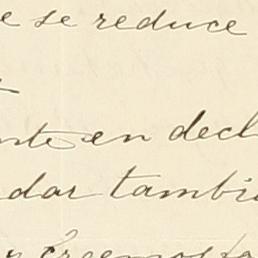 e se reduce
nte en decl
dar tambi
y creemos